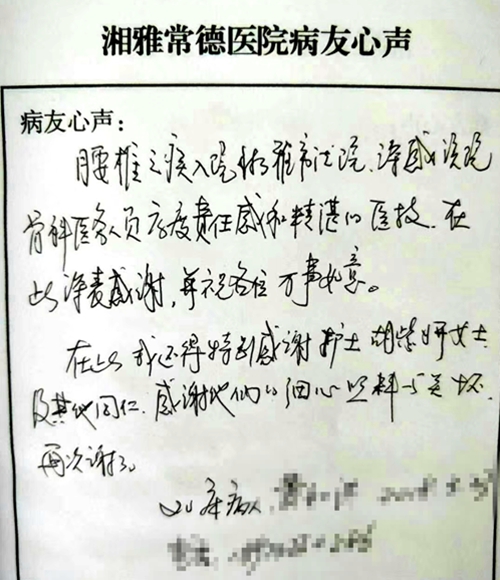 湘雅常德医院病友心声
病友心声：
腰椎之疾入院湘雅常德院，深感该院
骨科医务人员高度责任感和精湛的医技，在
此深表感谢，并祝各位万事如意。
在此我还得特别感谢护士胡紫妍女士
及其他同仁，感谢他们的细心照料与关怀，
再次谢了。
20床病人